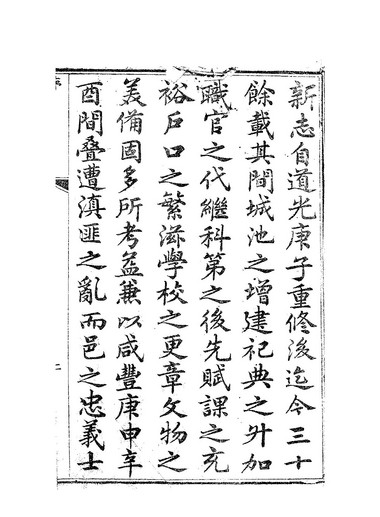 新志自道光庚子重修後迄今三十
餘載其間城池之增建祀典之升加
職官之代繼科第之後先賦課之充
裕戶口之繁滋學校之更章文物之
美備固多所考益兼以咸豐庚申辛
酉間疊遭滇匪之亂而邑之忠義士